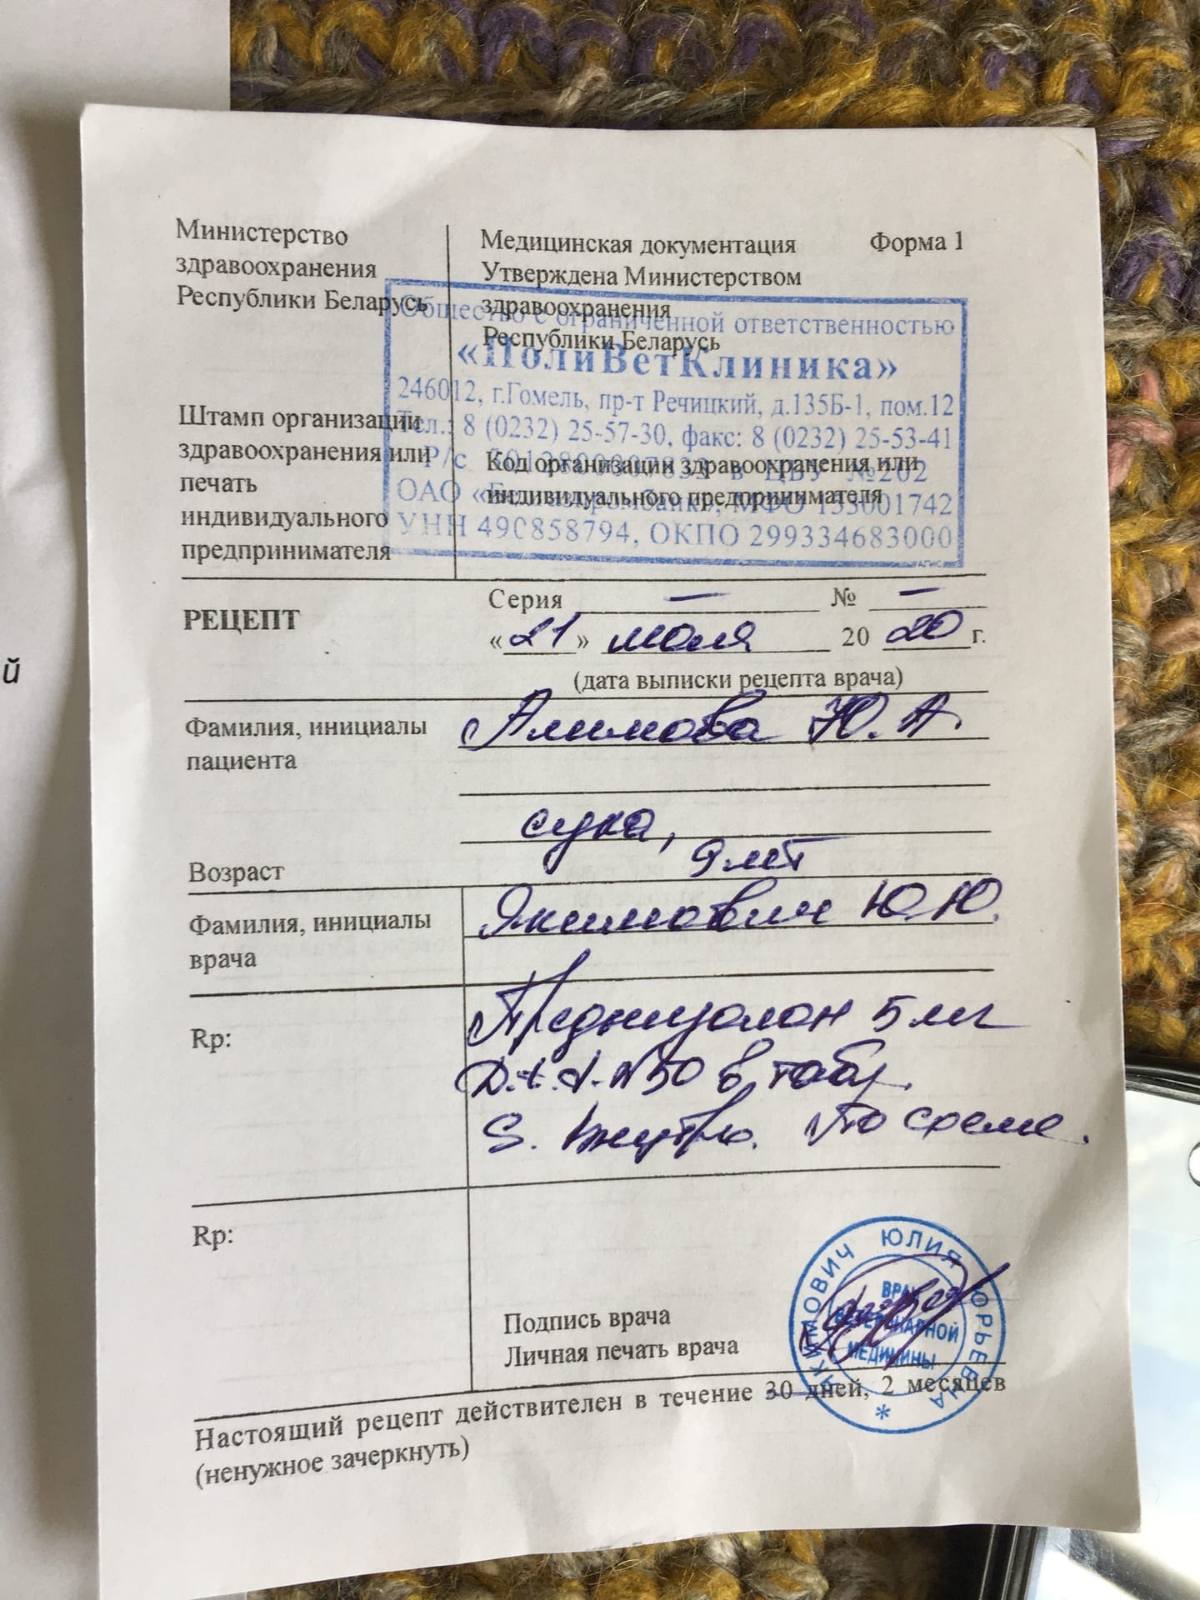 Министерство
здравоохранения
Республики Беларусь
Медицинская документация Форма 1
Утверждена Министерством
здравоохранения
Республики Беларусь
Общество с ограниченной ответственностью
«ПолиВетКлиника»
246012, г.Гомель, пр-т Речицкий, д.135Б-1, пом.12
Тел.: 8 (0232) 25-57-30, факс: 8 (0232) 25-53-41
Р/с в ЦБУ №202
ОАО «Белгазпромбанк», МФО 153001742
УНН 490858794, ОКПО 299334683000
Штамп организации
здравоохранения или
печать
индивидуального
предпринимателя
Код организации здравоохранения или
индивидуального предпринимателя
РЕЦЕПТ
Серия — № —
«21» июля 20 20 г.
(дата выписки рецепта врача)
Фамилия, инициалы
пациента
Алимова Ю. А.
сука,
Возраст
9 лет
Фамилия, инициалы
врача
Якимович Ю.Ю.
Rp:
Преднизолон 5 мг
D.t.d. №50 в табл.
S. Внутрь. По схеме.
Rp:
Подпись врача
Личная печать врача
ЯКИМОВИЧ ЮЛИЯ ЮРЬЕВНА *
ВРАЧ
ВЕТЕРИНАРНОЙ
МЕДИЦИНЫ
Настоящий рецепт действителен в течение 30 дней, 2 месяцев
(ненужное зачеркнуть)
й